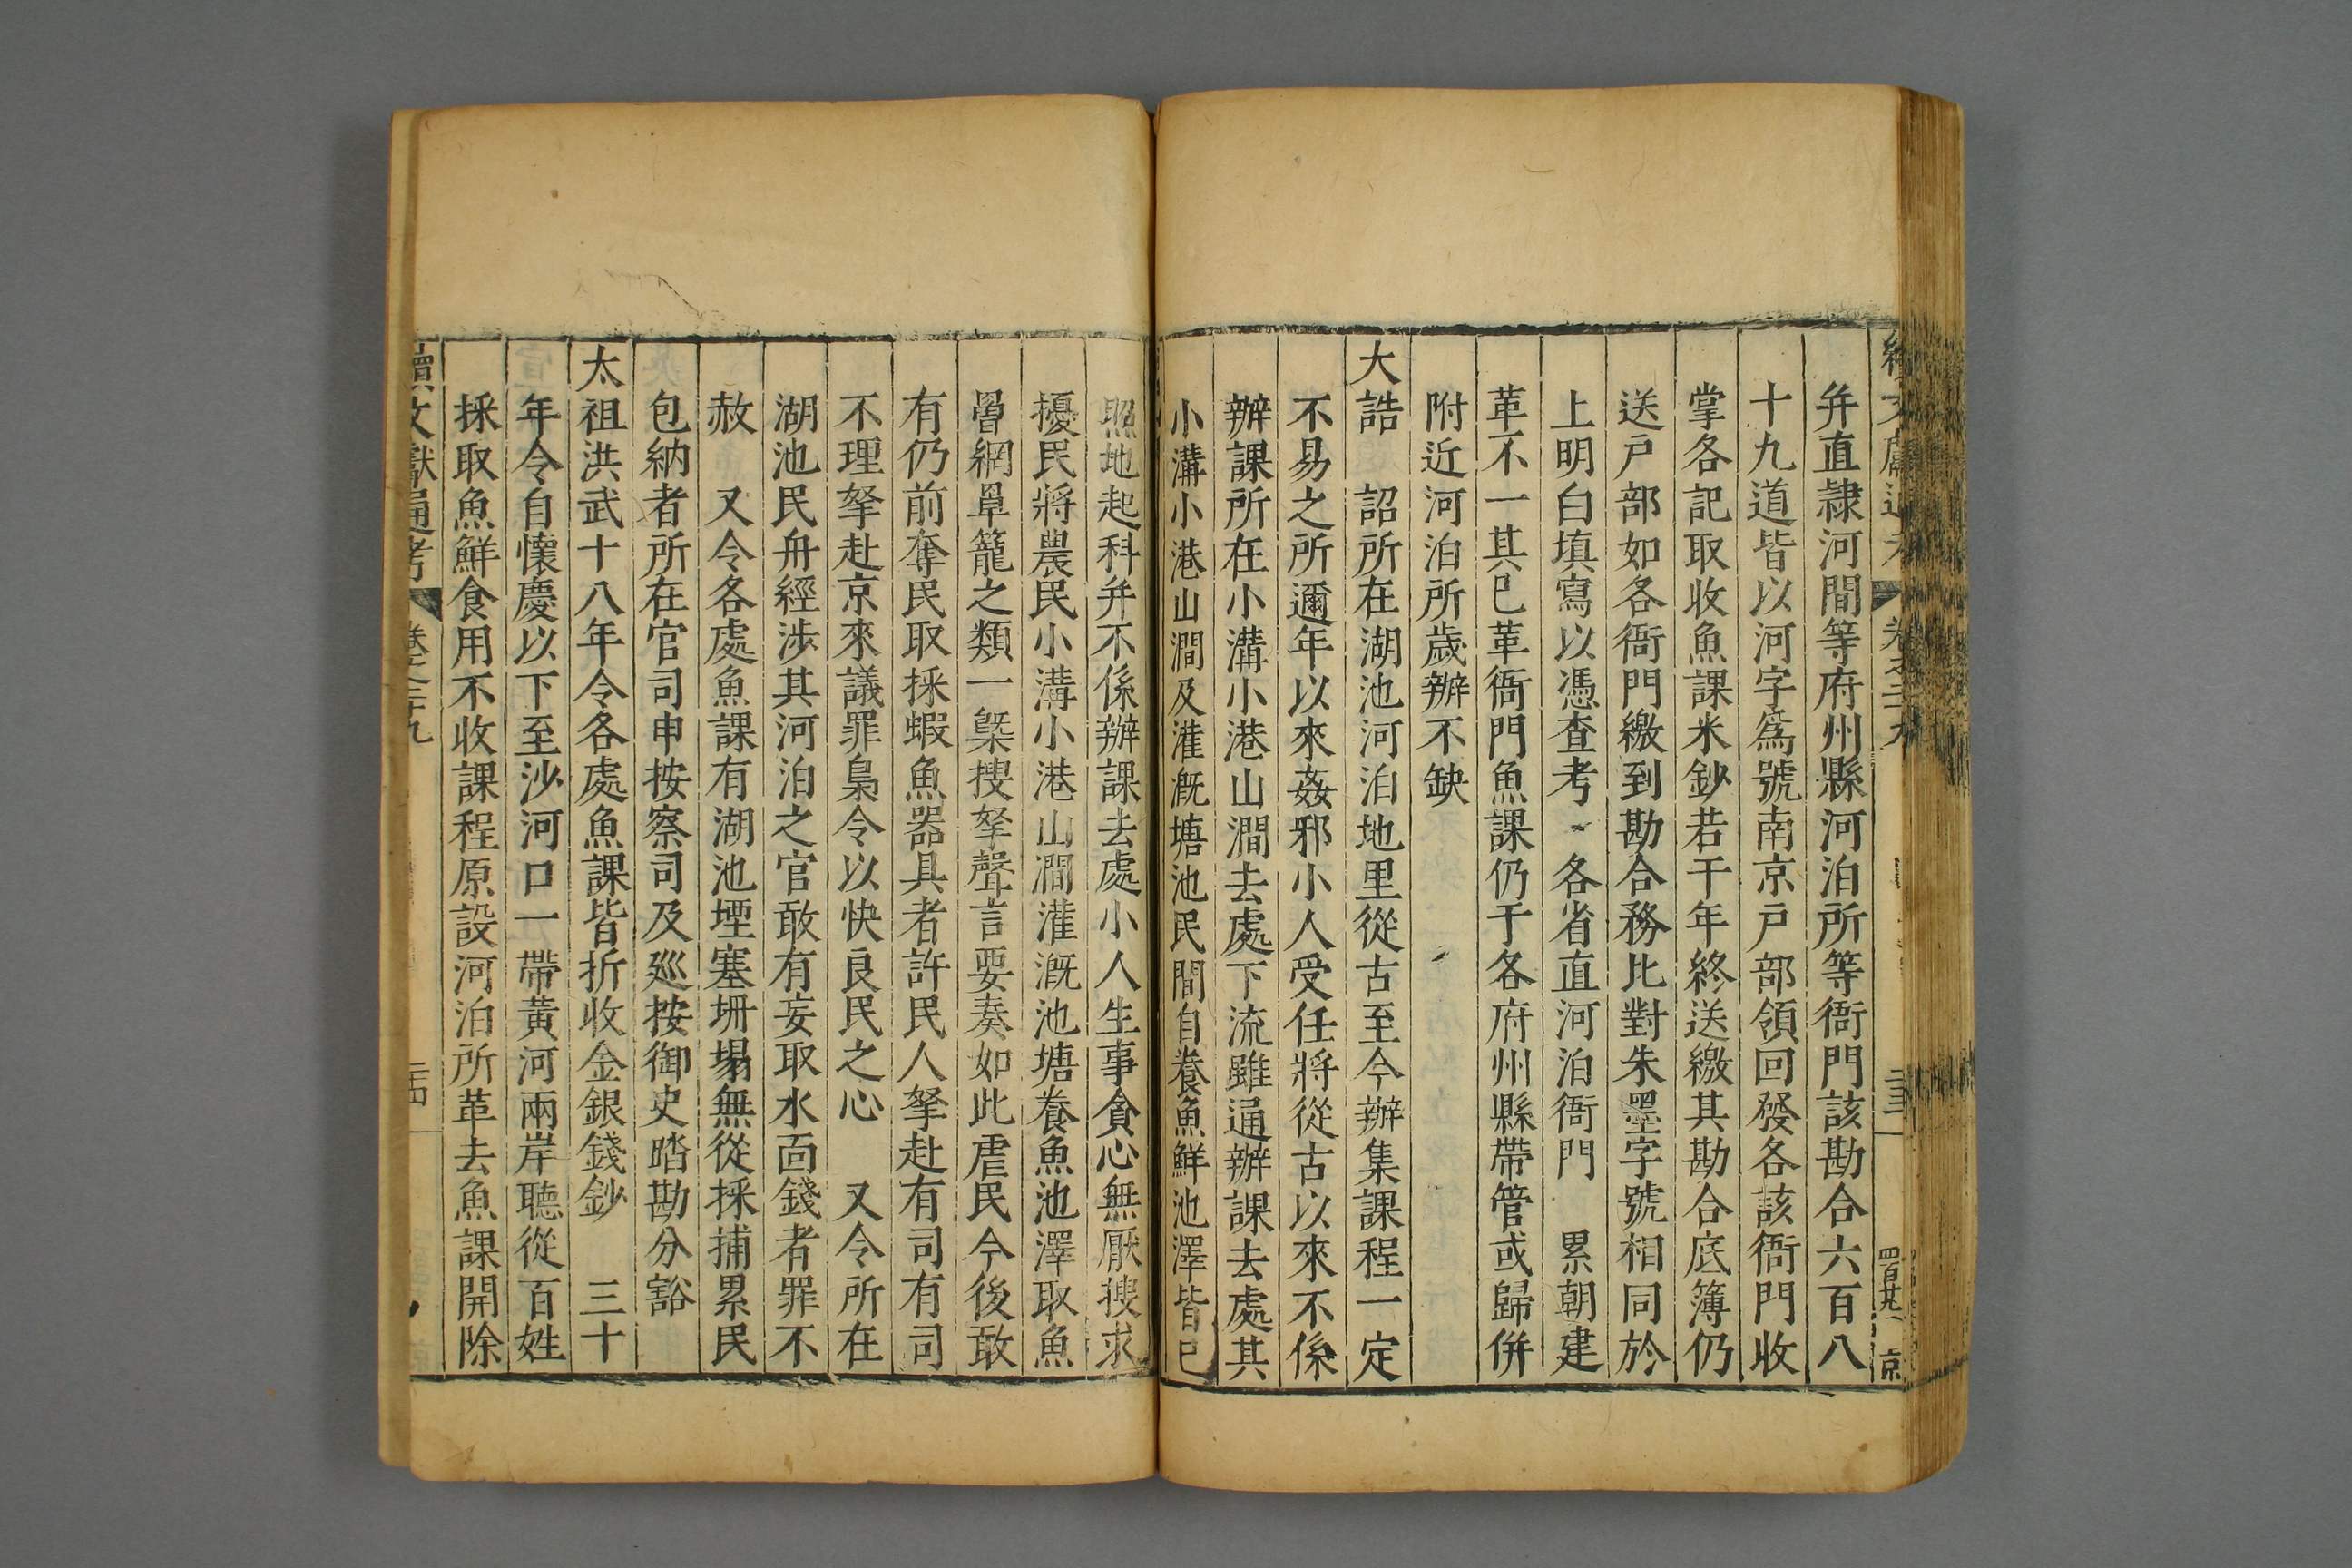 弁直隷河間等府州縣河泊所等衙門該勘合六百八
十九道皆以河字爲號南京戸部領回發各該衙門收
掌各記取收魚課米鈔若干年終送繳其勘合底簿仍
送戸部如各衙門繳到勘合務比對朱墨字號相同於
上明白填寫以憑查考 各省直河泊衙門 累朝建
革不一其已革衙門魚課仍于各府州縣帶管或歸併
附近河泊所歲辦不缺
大誥 詔所在湖池河泊地里從古至今辦集課程一定
不易之所邇年以來姦邪小人受任將從古以來不係
辦課所在小溝小港山澗去處下流雖通辦課去處其
小溝小港山澗及灌漑塘池民間自養魚鮮池澤皆已
照地起科弁不係辦課去處小人生事貪心無厭搜求
擾民將農民小溝小港山澗灌漑池塘養魚池澤取魚
罾網罩籠之類一槩搜拏聲言要奏如此虐民今後敢
有仍前奪民取採蝦魚器具者許民人拏赴有司有司
不理拏赴京來議罪梟令以快良民之心 又令所在
湖池民舟經涉其河泊之官敢有妄取水面錢者罪不
赦 又令各處魚課有湖池堙塞坍塌無從採捕累民
包納者所在官司申按察司及廵按御史踏勘分豁
太祖洪武十八年令各處魚課皆折收金銀錢鈔 三十
年令自懷慶以下至沙河口一帶黃河兩岸聽從百姓
採取魚鮮食用不收課程原設河泊所革去魚課開除
續文獻通考 卷之二十九 二十四